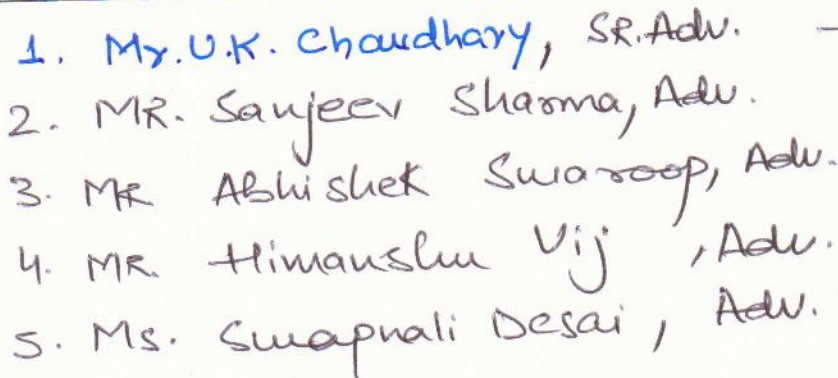 1. Mr. U.K. Chaudhary, SR. Adv. -
2. MR. Sanjeev Sharma, Adv.
3. MR Abhishek Swaroop, Adv.
4. MR. Himanshu Vij , Adv.
5. Ms. Swapnali Desai , Adv.